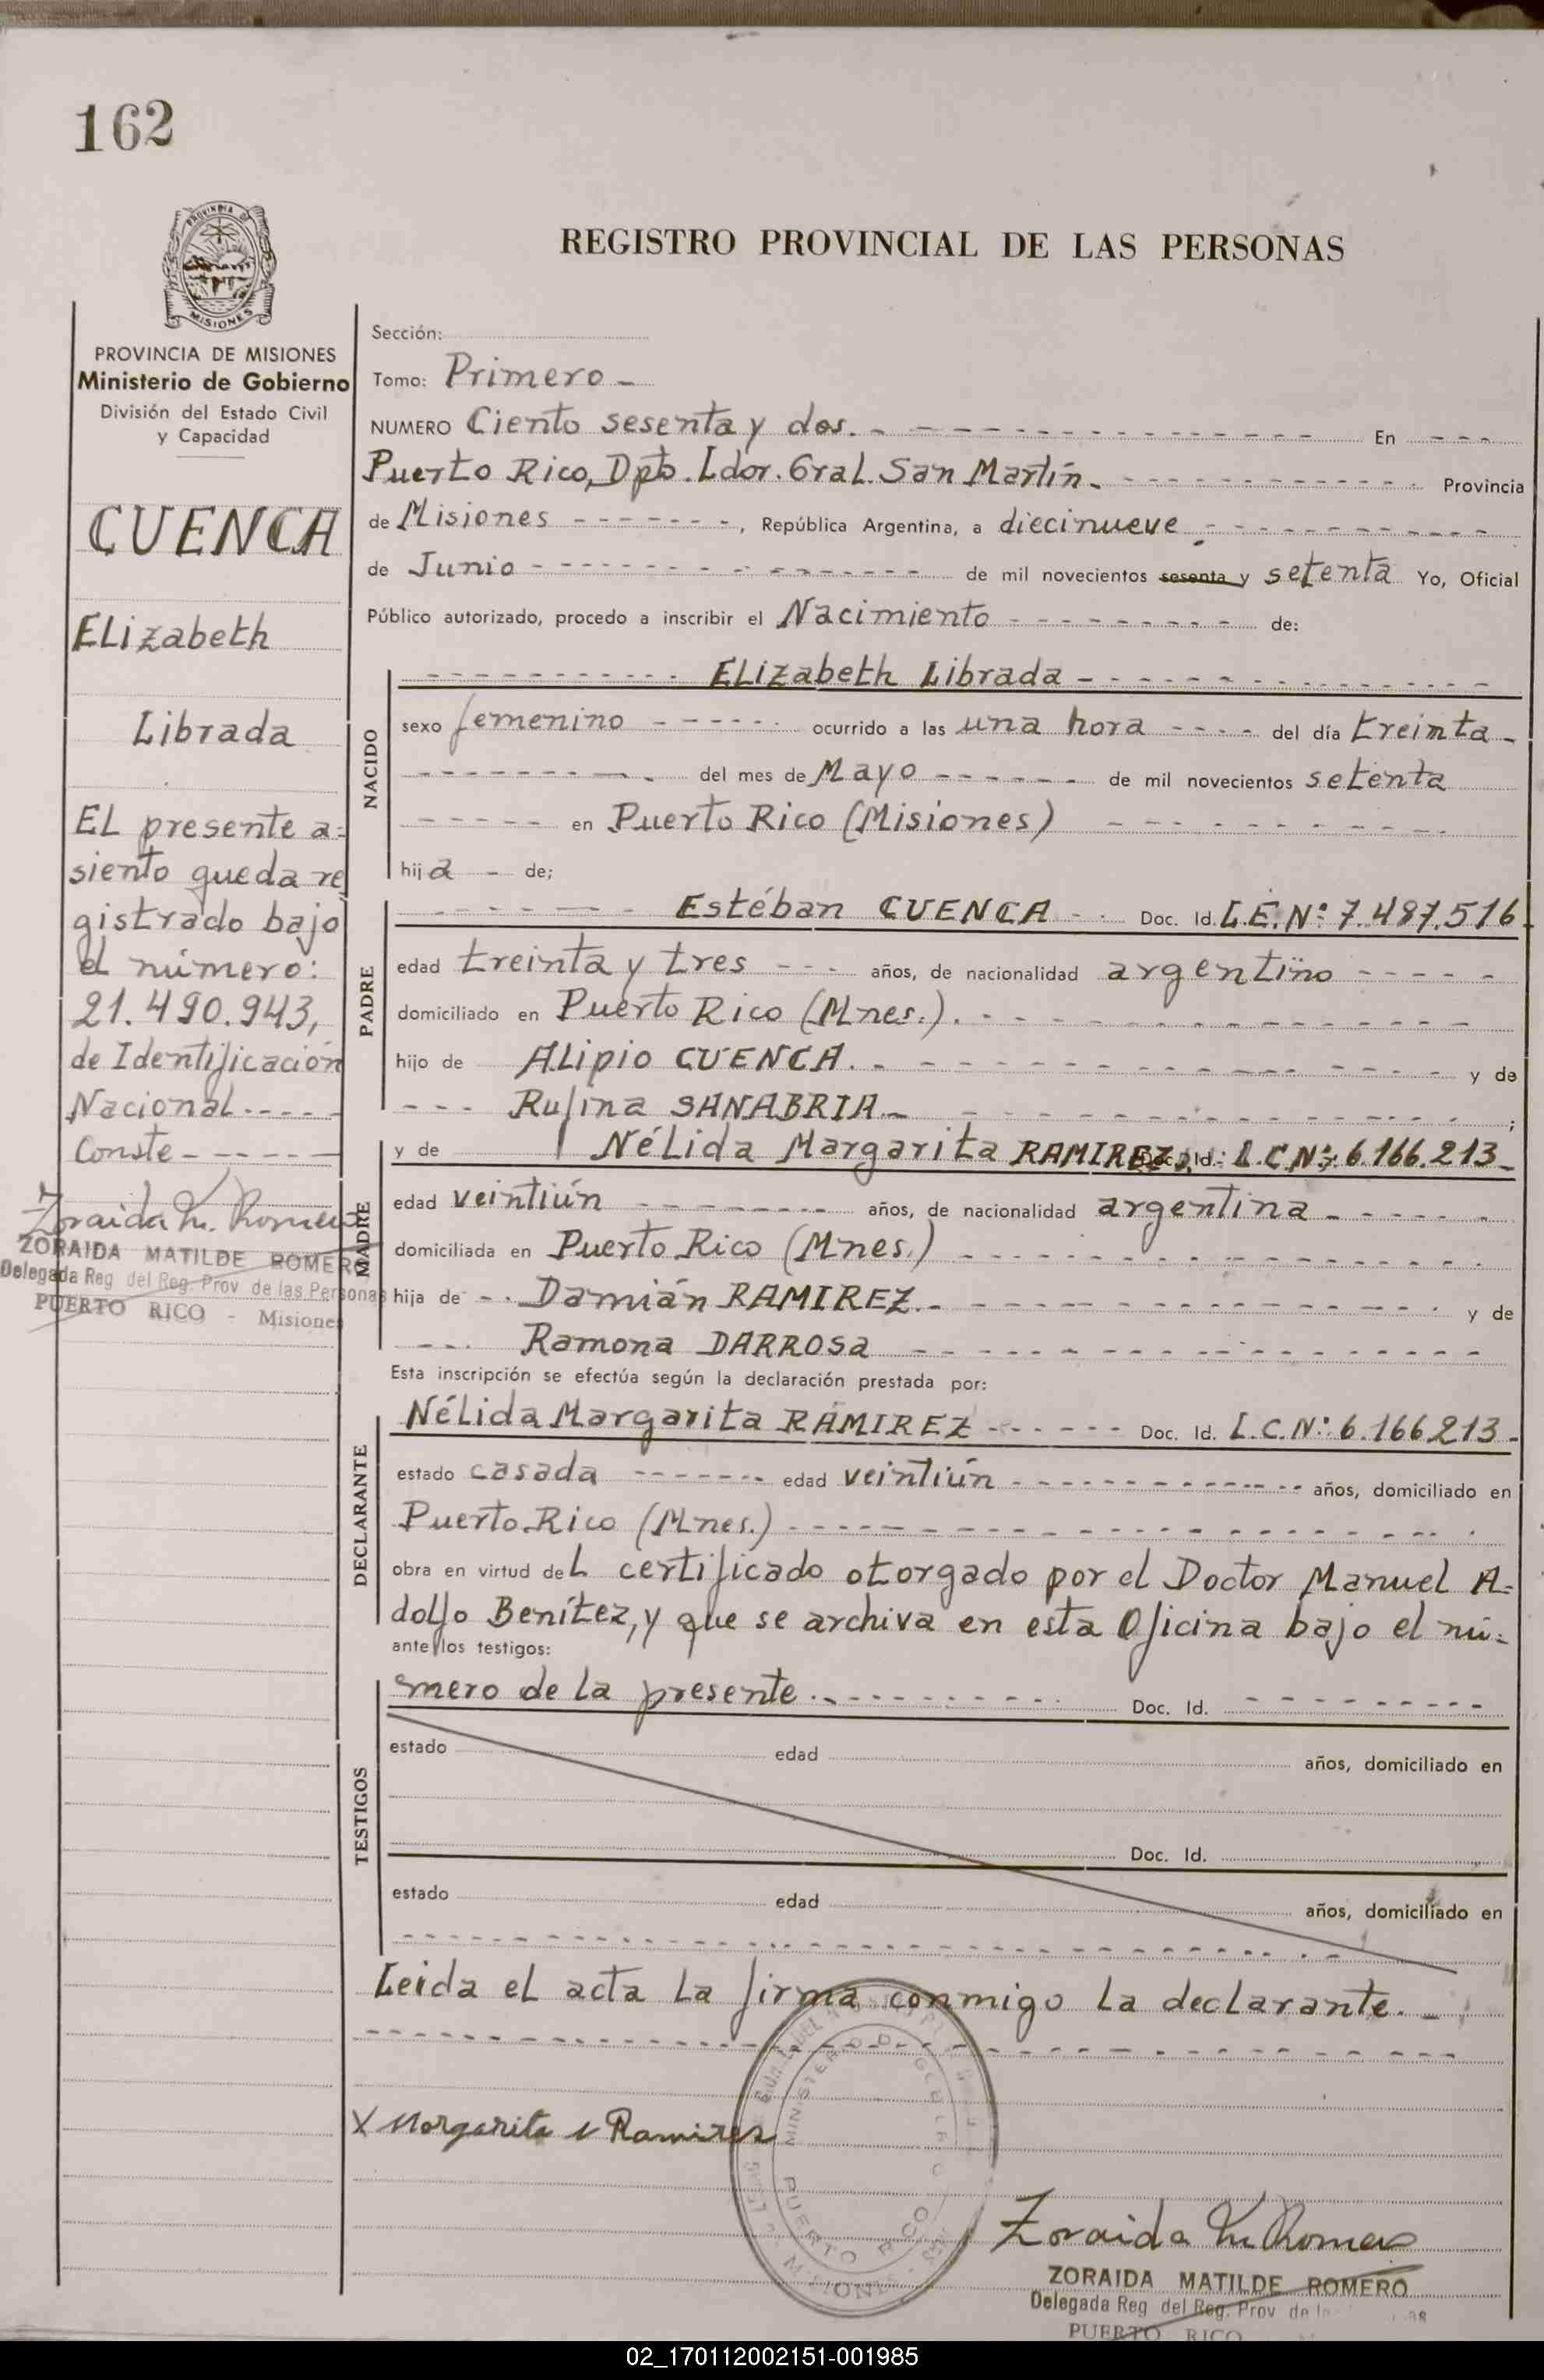 162
PROVINCIA DE
MISIONES
REGISTRO PROVINCIAL DE LAS PERSONAS
PROVINCIA DE MISIONES
Ministerio de Gobierno
División del Estado Civil
y Capacidad
CUENCA
Elizabeth
Librada
El presente a=
siento queda re
gistrado bajo
el número:
21.490.943,
de Identificación
Nacional.----
Conste-----
Zoraida M. Romero
ZORAIDA MATILDE ROMERO
Delegada Reg del Reg. Prov de las Personas
PUERTO RICO - Misiones
Sección:
Tomo: Primero -
NUMERO Ciento sesenta y dos. - En ---
Puerto Rico, Dpto. Ldor. Gral. San Martín. - Provincia
de Misiones -------, República Argentina, a diecinueve -
de Junio - de mil novecientos sesenta y setenta Yo, Oficial
Público autorizado, procedo a inscribir el Nacimiento - de:
NACIDO
Elizabeth Librada -
sexo femenino - ocurrido a las una hora ---- del día treinta -
del mes de Mayo - de mil novecientos setenta
en Puerto Rico (Misiones) -
hija - de;
PADRE
Estéban CUENCA - Doc. Id. L.E. Nº: 7.487.516.
edad treinta y tres --- años, de nacionalidad argentino -----
domiciliado en Puerto Rico (Mnes.). -
hijo de Alipio CUENCA. - y de
--- Rufina SANABRIA. - ;
MADRE
y de Nélida Margarita RAMIREZ, Doc. Id.: L.C.Nº: 6.166.213 -
edad veintiún - años, de nacionalidad argentina -
domiciliada en Puerto Rico (Mnes.) -
hija de -. Damián RAMIREZ. - y de
--- Ramona DARROSA -
Esta inscripción se efectúa según la declaración prestada por:
DECLARANTE
Nélida Margarita RAMIREZ - Doc. Id. L.C.Nº: 6.166213 -
estado casada - edad veintiún - años, domiciliado en
Puerto Rico (Mnes.) -
obra en virtud del certificado otorgado por el Doctor Manuel A=
dolfo Benítez, y que se archiva en esta Oficina bajo el nú=
ante los testigos:
TESTIGOS
mero de la presente. - Doc. Id. -
estado edad años, domiciliado en
Doc. Id.
estado edad años, domiciliado en
Leida el acta la firma conmigo la declarante. -
X Margarita N Ramirez
MINISTERIO DE GOBIERNO
PUERTO RICO
MISIONES
Zoraida M. Romero
ZORAIDA MATILDE ROMERO
Delegada Reg del Reg. Prov de
PUERTO RICO
02_170112002151-001985